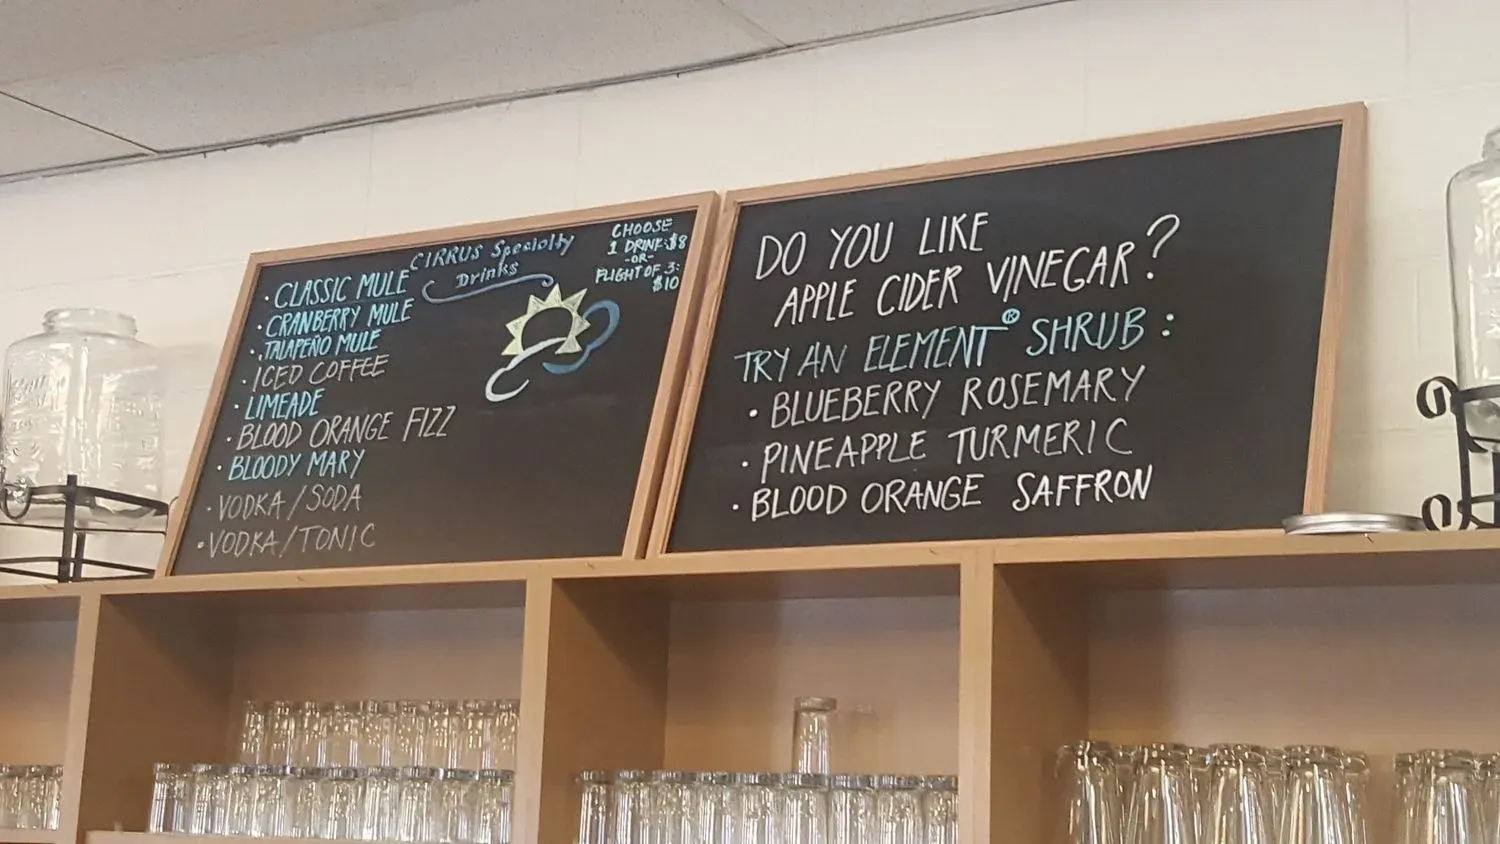 CIRRUS Specialty
Drinks
CHOOSE
1 DRINK: $8
-OR-
FLIGHT OF 3:
$10
· CLASSIC MULE
· CRANBERRY MULE
· JALAPEÑO MULE
· ICED COFFEE
· LIMEADE
· BLOOD ORANGE FIZZ
· BLOODY MARY
· VODKA/SODA
· VODKA/TONIC
DO YOU LIKE
APPLE CIDER VINEGAR?
TRY AN ELEMENT® SHRUB:
· BLUEBERRY ROSEMARY
· PINEAPPLE TURMERIC
· BLOOD ORANGE SAFFRON